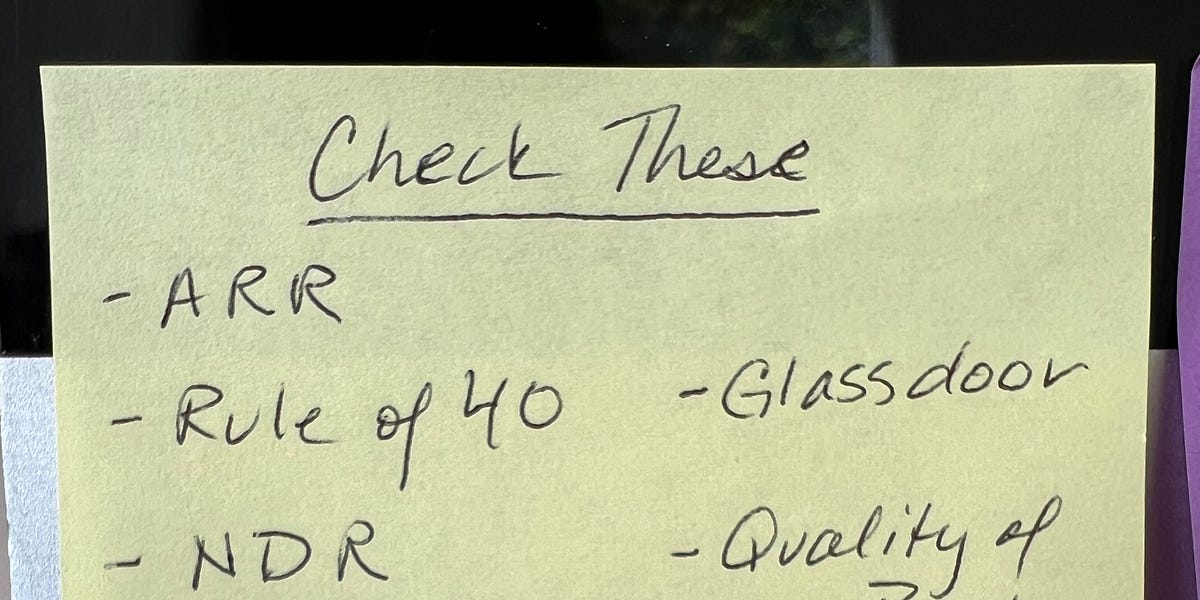 Check These
- ARR
- Rule of 40
- NDR
- Glassdoor
- Quality of